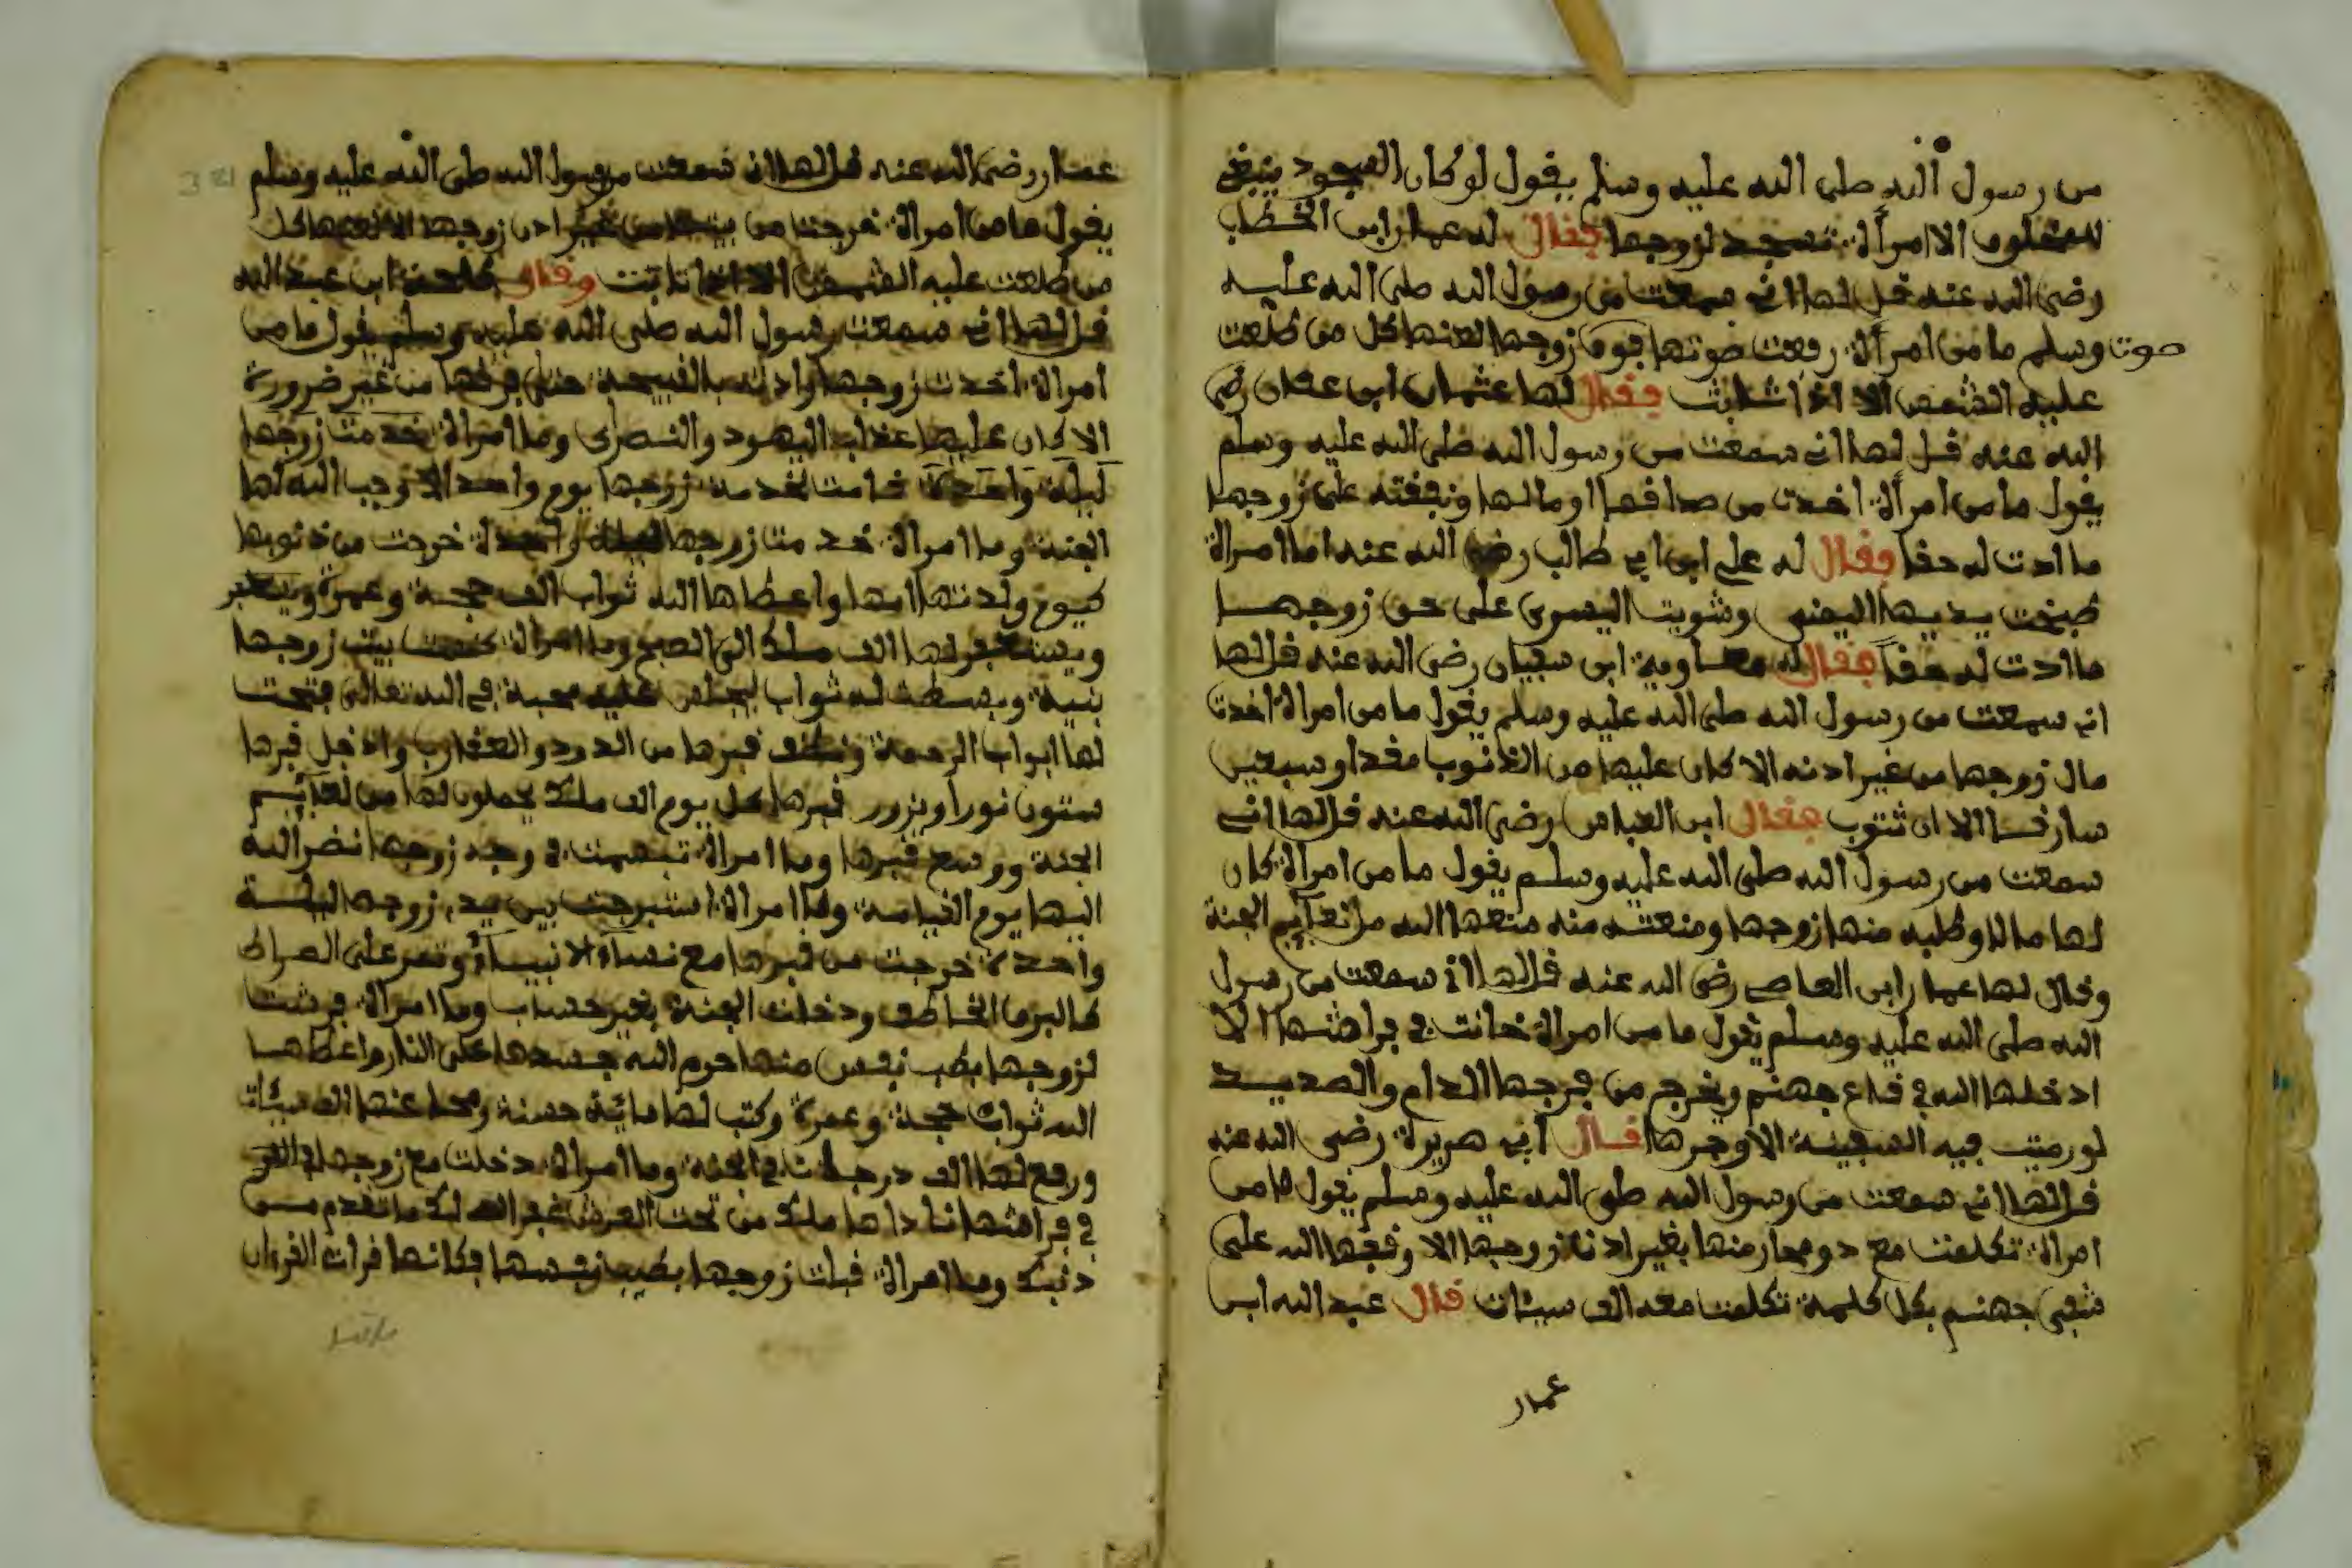 من رسول الله صلى الله عليه وسلم يقول لو كان السجود ينبغي
للمخلوق الا امرأة تسجد لزوجها فقال له عمار ابن الخطاب
رضي الله عنه قل لها اني سمعت من رسول الله صلى الله عليه
صوت وسلم ما من امرأة رفعت صوتها فوق زوجها لعنها كل من طلعت
عليه الشمس الا اذا تابت فقال لها عثمان ابن عفان رضي
الله عنه قل لها اني سمعت من رسول الله صلى الله عليه وسلم
يقول ما من امرأة اخدت من صداقها او مالها ونفقته على زوجها
ما ادت له حقا فقال له علي ابن ابي طالب رضي الله عنه اما امراة
طبخت يديها اليمنى وشويت اليسرى على حق زوجها
ما ادت له حقا فقال له معاوية ابن سفيان رضي الله عنه قل لها
اني سمعت من رسول الله صلى الله عليه وسلم يقول ما من امراة اخدت
مال زوجها من غير ادنه الا كان عليها من الذنوب مقدار سبعين
سارقا الا ان تتوب فقال ابن العباس رضي الله عنه قل لها اني
سمعت من رسول الله صلى الله عليه وسلم يقول ما من امراة كان
لها مالا وطلبه منها زوجها ومنعته منه منعها الله من نعايم الجنة
وقال لها عمار ابن العاصي رضي الله عنه قل لها اني سمعت من رسول
الله صلى الله عليه وسلم يقول ما من امراة خانت في فراشها الا
ادخلها الله في قاع جهنم ويخرج من فرجها الدام والصديد
لو رميت فيه السفينة الا وجرها قال ابي هريرة رضي الله عنه
قل لها اني سمعت من رسول الله صلى الله عليه وسلم يقول ما من
امراة تكلمت مع دو محار منها بغير ادن زوجها الا وقعها الله على
شفى جهنم بكل كلمة تكلمت معه الف سيئات قال عبد الله ابن
عمار
عمار رضي الله عنه قل لها اني سمعت رسول الله صلى الله عليه وسلم
يقول ما من امراة خرجت من بيتها من غير ادن زوجها الا لعنها كل
من طلعت عليه الشمس الا اذا تابت وقال طلحة ابن عبد الله
قل لها اني سمعت رسول الله صلى الله عليه وسلم يقول ما من
امراة اخدت زوجها وادته بالقبيحة حتى فرقها من غير ضرورة
الا كان عليها عذاب اليهود والنصارى وما امراة خدمت زوجها
ليلة واحدة قامت بخدمة زوجها يوم واحد الا وجب الله لها
الجنة وما امراة خدمت زوجها ليلة واحدة خرجت من ذنوبها
كيوم ولدتها امها واعطاها الله ثواب الف حجة وعمرة
ويستغفر لها الف ملك الى الصبح وما امراة كنست بيت زوجها
بنية وبسطت له ثواب ليجلس عليه محبة في الله تعالى فتحت
لها ابواب الرحمة ونظف قبرها من الدود والعقارب وادخل قبرها
ستون نورا ويزور قبرها كل يوم الف ملك يحملون لها من نعايم
الجنة ووسع قبرها وما امراة تبسمت في وجه زوجها نضر الله
اليها يوم القيامة وما امراة استبرجت بين يدي زوجها ليلة
واحدة خرجت من قبرها مع نساء الانبياء وتمر على الصراط
كالبرق الخاطف ودخلت الجنة بغير حساب وما امراة فرشت
لزوجها بطيب نفس منها حرم الله جسدها على النار واعطاها
الله ثواب حجة وعمرة وكتب لها مائة حسنة ومحا عنها الف سيئات
ورفع لها الف درجات في الجنة وما امراة دخلت مع زوجها
في فراشها نادها ملك من تحت العرش غفر الله لك ما تقدم من
دنبك وما امراة قبلت زوجها بطيب نفسها فكانها قرات القرءان